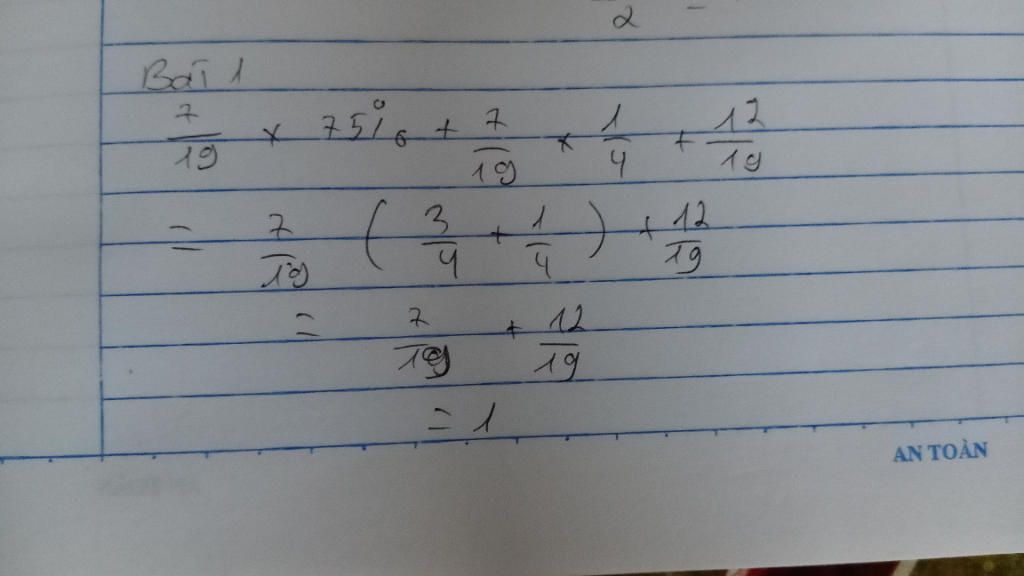 2 -
Bài 1
7/19 × 75% + 7/19 × 1/4 + 12/19
= 7/19 ( 3/4 + 1/4 ) + 12/19
= 7/19 + 12/19
= 1
AN TOÀN